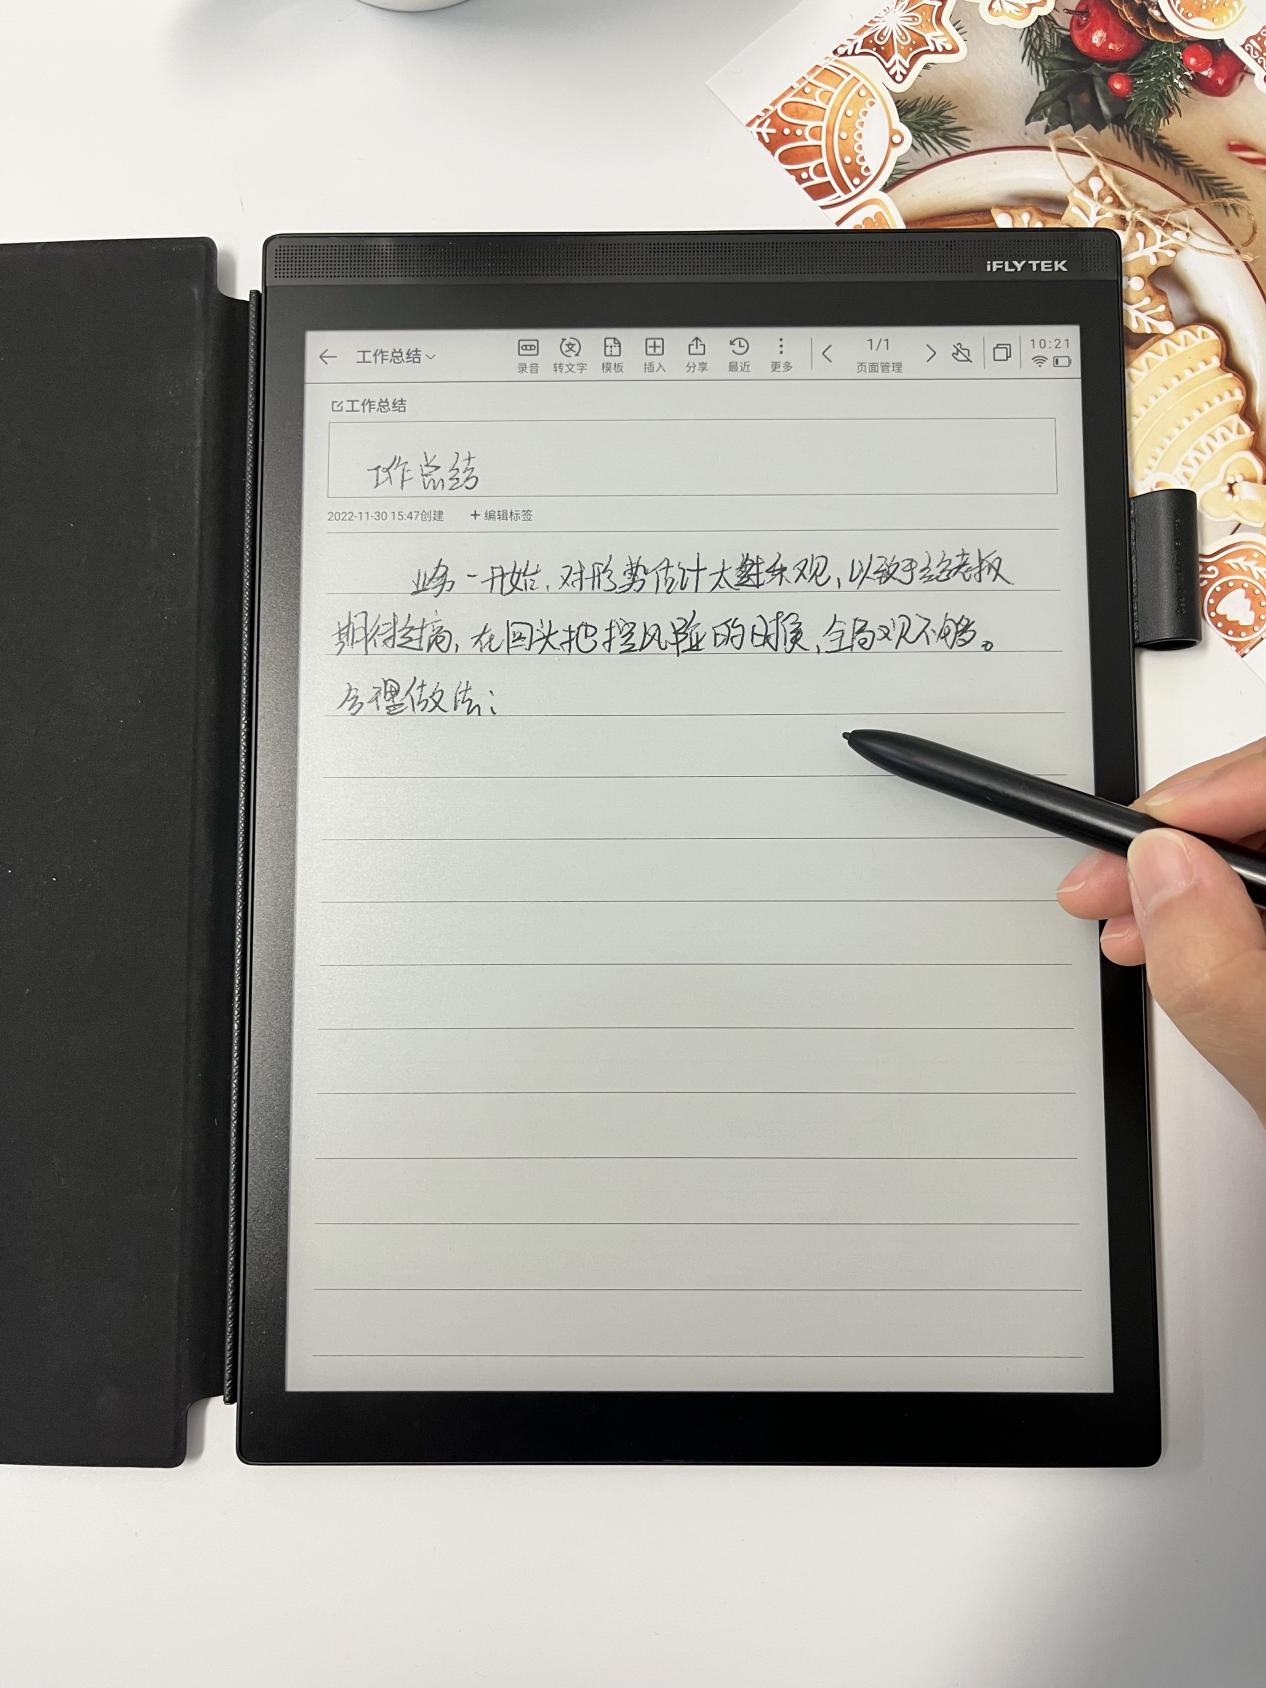 iFLYTEK
工作总结
录音 转文字 模板 插入 分享 最近 更多 1/1 页面管理 10:21
工作总结
工作总结
2022-11-30 15:47创建 +编辑标签
业务一开始,对形势估计太过乐观,以致于给老板
期待过高,在回头把控风险的时候,全局观不够。
合理做法: